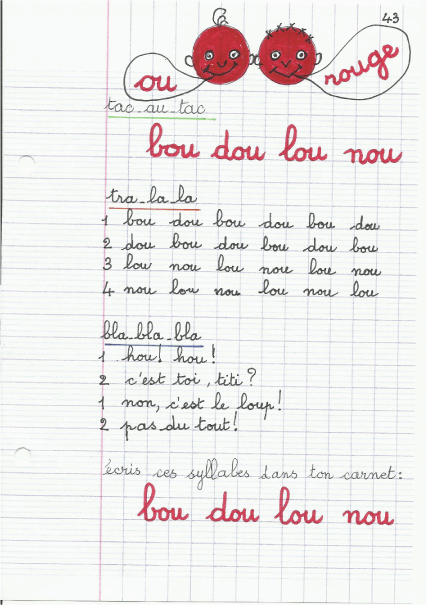 43
ou rouge
tac-au-tac
bou dou lou nou
tra-la-la
1 bou dou bou dou bou dou
2 dou bou dou bou dou bou
3 lou nou lou nou lou nou
4 nou lou nou lou nou lou
bla-bla-bla
1 hou! hou!
2 c'est toi, titi?
1 non, c'est le loup!
2 pas du tout!
écris ces syllabes dans ton carnet:
bou dou lou nou